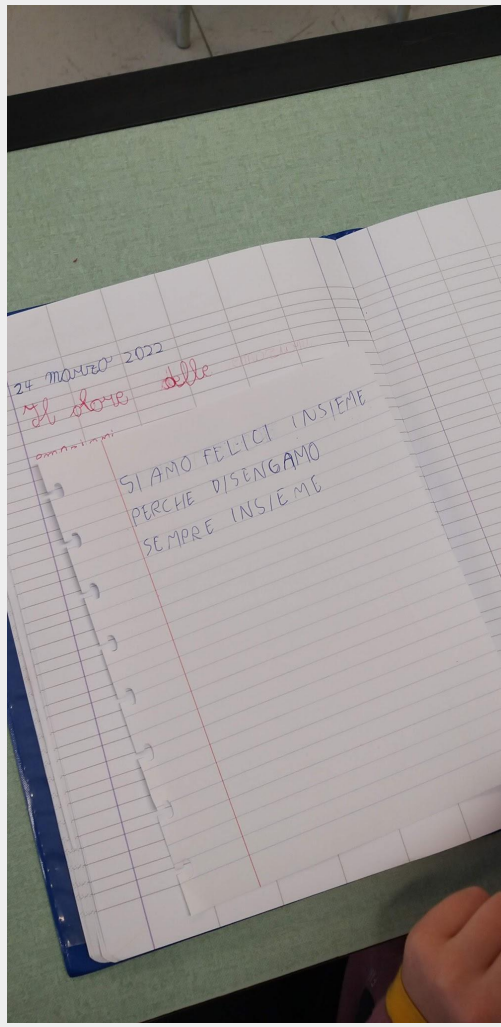 24 marzo 2022
Il dove delle
SIAMO FELICI INSIEME
PERCHE DISENGAMO
SEMPRE INSIEME